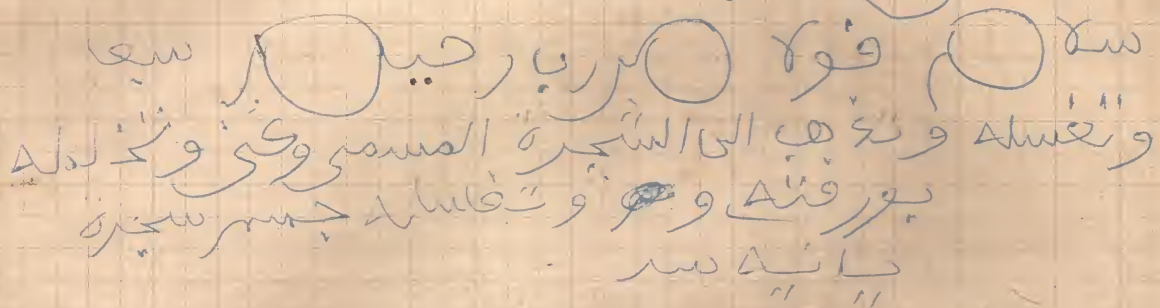 سلام قولا من رب رحيم سبعا
وتغسله وتذهب الى الشجرة المسمى وغى وتخدليه
بورقته و وتغاسله جسم سجرة